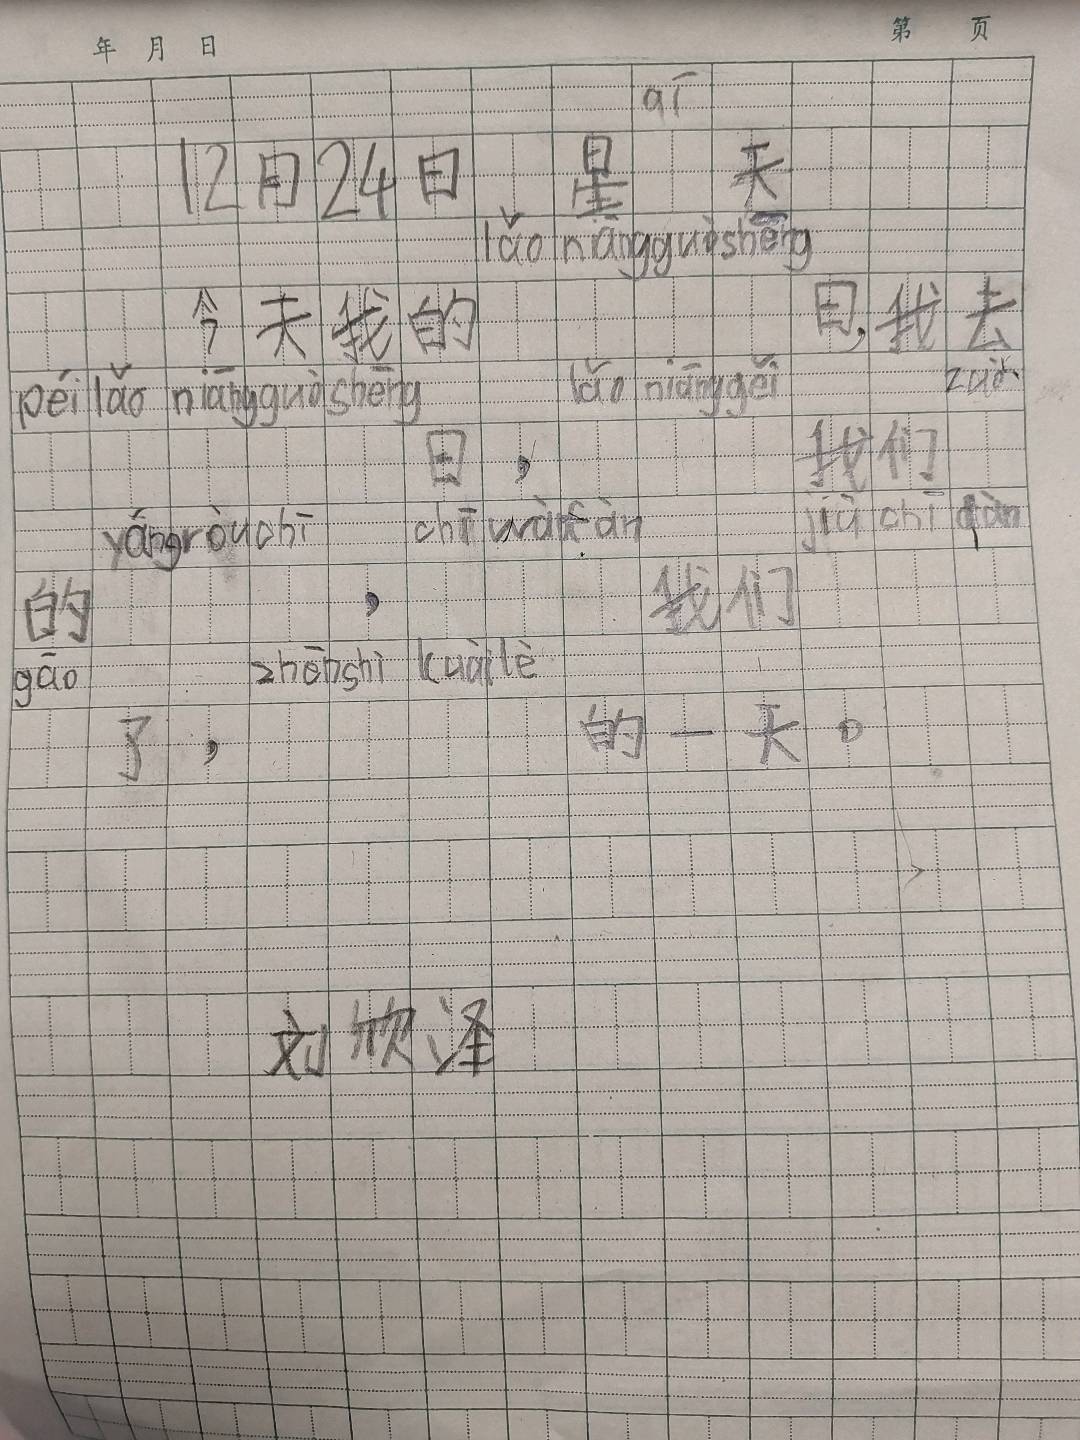 年 月 日 第 页
aī
12月24日 星 天
lǎo niángguòshēng
今天我的 日,我去
péi lǎo niángguòshēng lǎo niánggěi zuò
日, 我们
yángròuchī chī wàfàn jiù chī dàn
的 , 我们
gāo zhēnshì kuàilè
了, 的一天。
刘欣泽